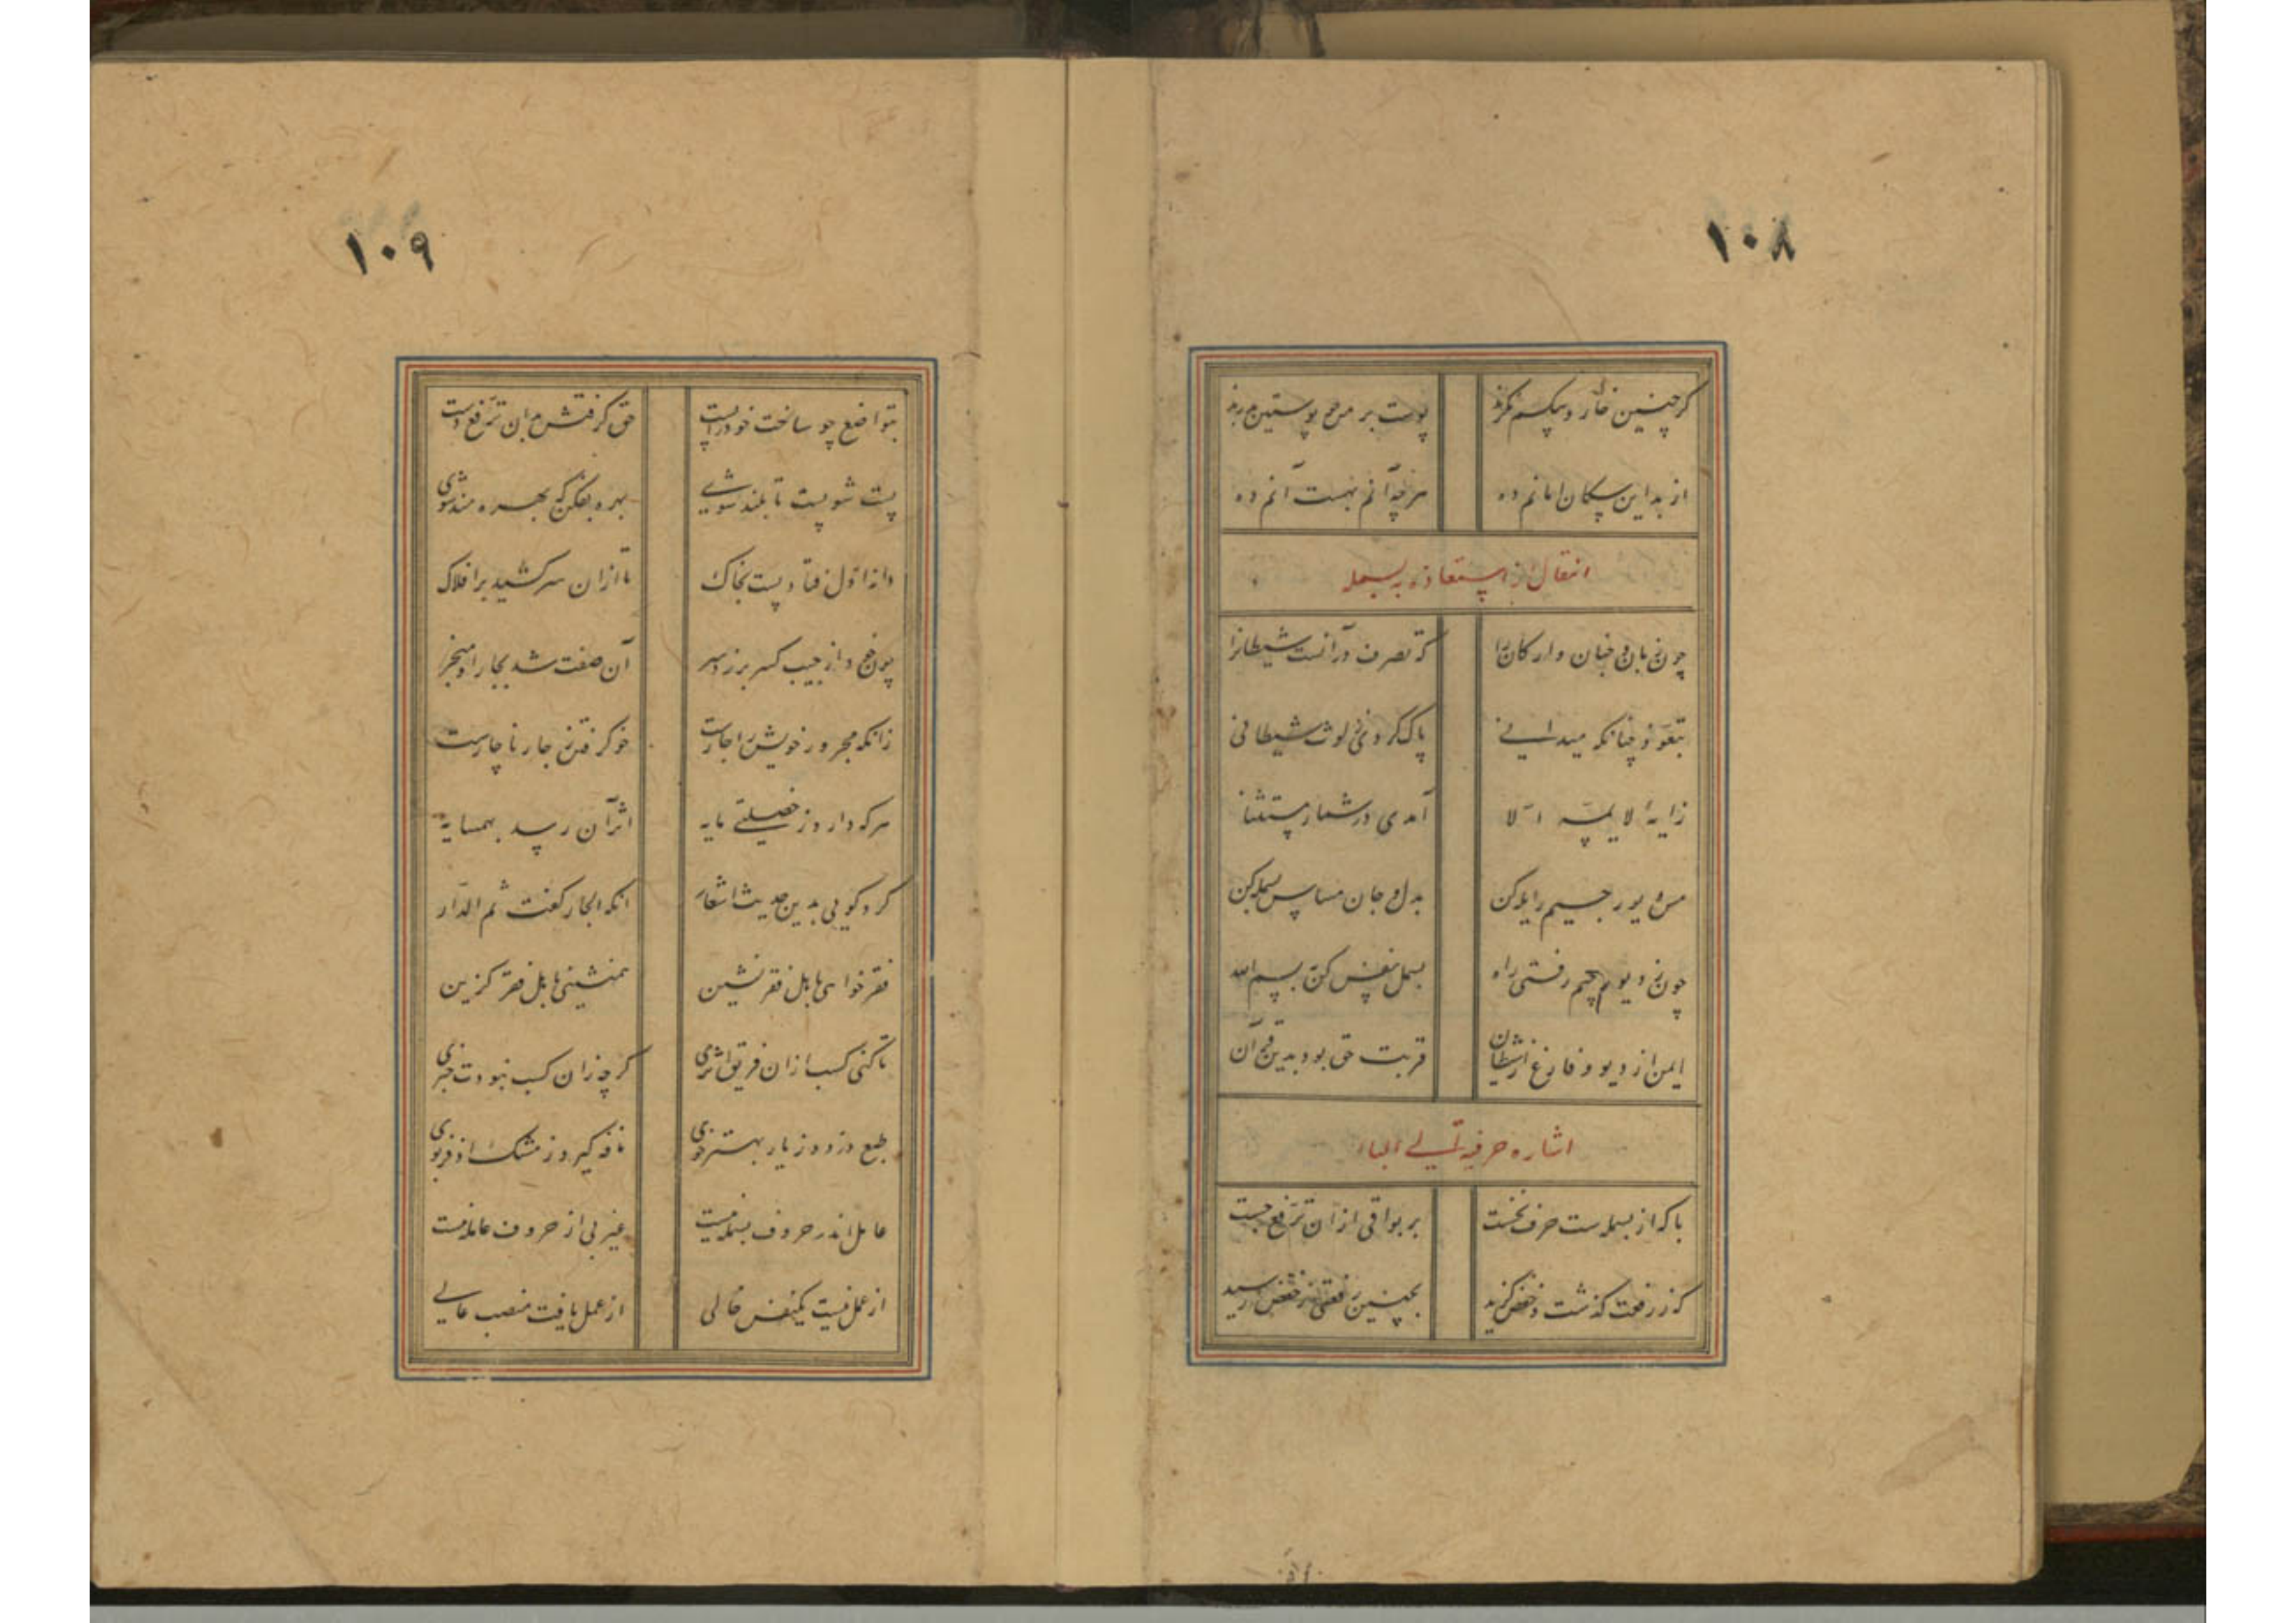 ۱۰۸
گر چنین خوار و بیکسم نگرند پوست بر من چو پوستین بدرند
از بد این سگان امانم ده هرچه آنم بهست آنم ده
انتقال از استعاذه به بسمله
چون زبان و جنان و ارکان را که تصرف در آنست شیطانرا
بتعوذ چنانکه میدانی پاک کردی ز لوث شیطانی
زایهٔ لا یمسه الا آمدی در شمار مستثنا
من دیو رجیم را یله کن بدل و جان مساس بسمله کن
چون ز دیو رجیم رفتی راه بسمل نفس کن به بسم الله
ایمن از دیو و فارغ از شیطان قربت حق بود بدین قرآن
اشاره حرفیة الی الباء
با که از بسمله ست حرف نخست بر بواقی ازان ترفع جست
که ز رفعت گذشت و خفض گزید بچنین رفعتی ز خفض رسید
۱۰۹
بتواضع چو ساخت خود را پست حق گرفتش بدان ترفع دست
پست شو پست تا بلند شوی بهره بفکن که بهره مند شوی
دانه اول فتاد پست بخاک تا ازان سر کشید بر افلاک
چون خود از جیب کسر بر زد سر آن صفت شد بجار او منجر
زانکه مجرور خویش را جارست خو گرفتن ز جار ناچارست
هر که دارد ز خصلتی مایه اثر آن رسد بهمسایه
کرد گویی بدین حدیث اشعار آنکه الجار گفت ثم الدار
فقر خواهی باهل فقر نشین همنشینی باهل فقر گزین
تا کنی کسب ازان فریق اثری گرچه زان کسب نبودت خبری
طبع دزدد ز یار بهتر خوی نافه گیرد ز مشک اذفر بوی
عامل اندر حروف بسمله نیست غیر بی از حروف عامله نیست
از عمل نیست یکنفس خالی از عمل یافت منصب عالی